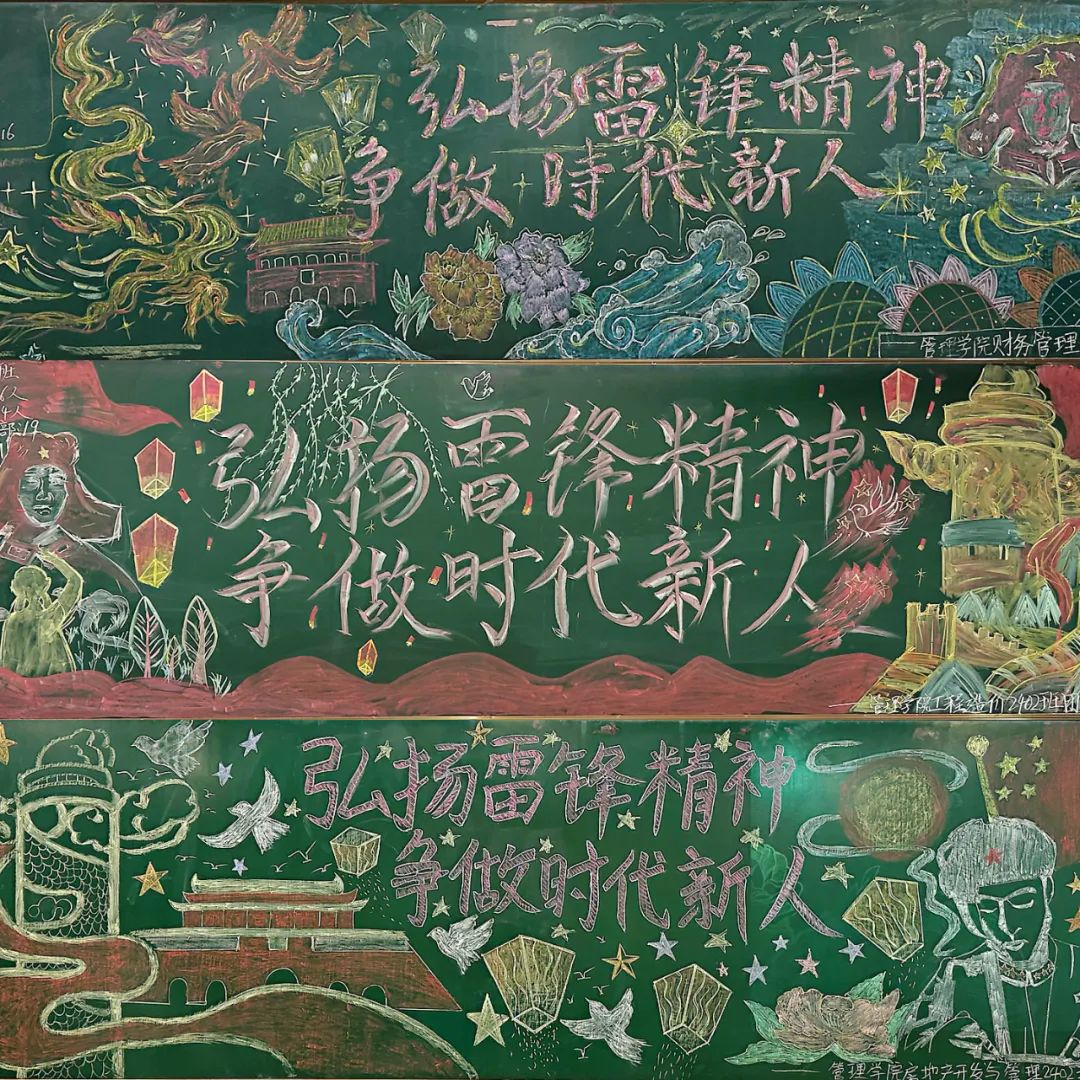 16
弘扬雷锋精神
争做時代新人
——管理学院财务管理
班
6人
4人
部:19
弘扬雷锋精神
争做时代新人
——管理学院工程造价2402班团
弘扬雷锋精神
争做时代新人
——管理学院房地产开发与管理2402